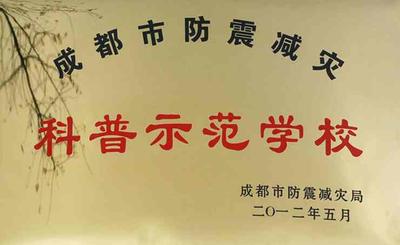 成都市防震减灾
科普示范学校
成都市防震减灾局
二〇一二年五月